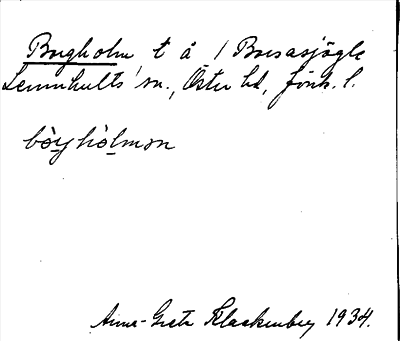 Borgholm t å / Boesasjögle
Lemnhults sn., Östra hd, Jönk. l.
bòrjhòlmən
Anna-Greta Klackenberg 1934.